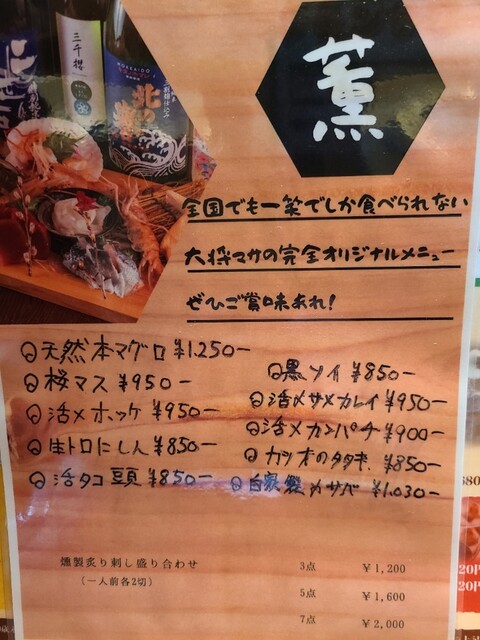 三千櫻
HOKKAIDO
北の
薫
全国でも一笑でしか食べられない
大将マサの完全オリジナルメニュー
ぜひご賞味あれ!
天然本マグロ ¥1.250-
桜マス ¥950-
活〆ホッケ ¥950-
生トロにしん ¥850-
活タコ頭 ¥850-
黒ソイ ¥850-
活〆サメカレイ ¥950-
活〆カンパチ ¥900-
カツオのタタキ ¥850-
自家製〆サバ ¥1.030-
燻製炙り刺し盛り合わせ
(一人前各2切)
3点 ¥1,200
5点 ¥1,600
7点 ¥2,000